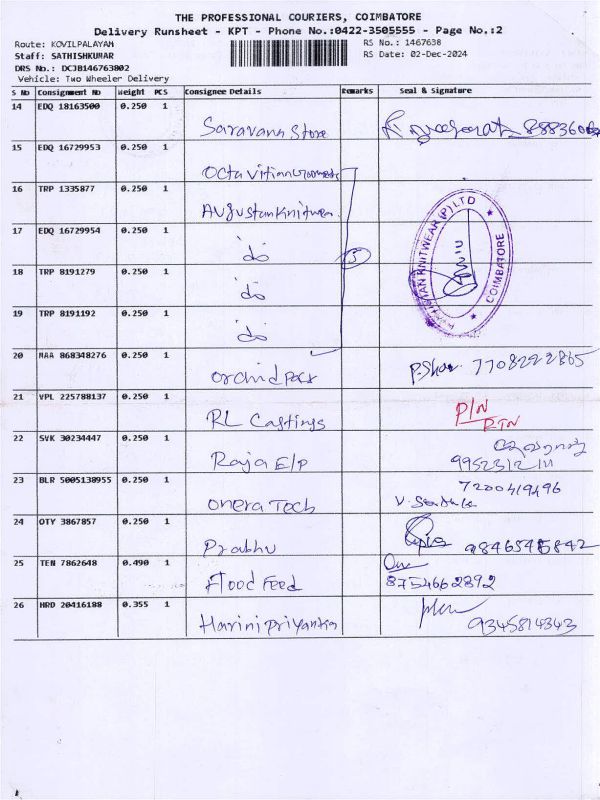 THE PROFESSIONAL COURIERS, COIMBATORE
Delivery Runsheet - KPT - Phone No.:0422-3505555 - Page No.:2
Route: KOVILPALAYAM RS No.: 1467638
Staff: SATHISHKUMAR RS Date: 02-Dec-2024
DRS No.: DCJB146763802
Vehicle: Two Wheeler Delivery
S No Consignment No Weight PCS Consignee Details Remarks Seal & Signature
14 EDQ 18163500 0.250 1 Saravana Store
15 EDQ 16729953 0.250 1
16 TRP 1335877 0.250 1 Augustan Knitwear
17 EDQ 16729954 0.250 1 do 5
18 TRP 8191279 0.250 1 do
19 TRP 8191192 0.250 1 do
KNITWEAR (P) LTD
COIMBATORE
20 MAA 868348276 0.250 1 7708222865
21 VPL 225788137 0.250 1 RL Castings P/N RTN
22 SVK 30234447 0.250 1 Raja E/P
23 BLR 5005138955 0.250 1 Onera Tech 7200419496
24 OTY 3867857 0.250 1 Prabhu
25 TEN 7862648 0.490 1 Flood Feed 8754662892
26 HRD 20416188 0.355 1 Harini Priyanka 9345814343